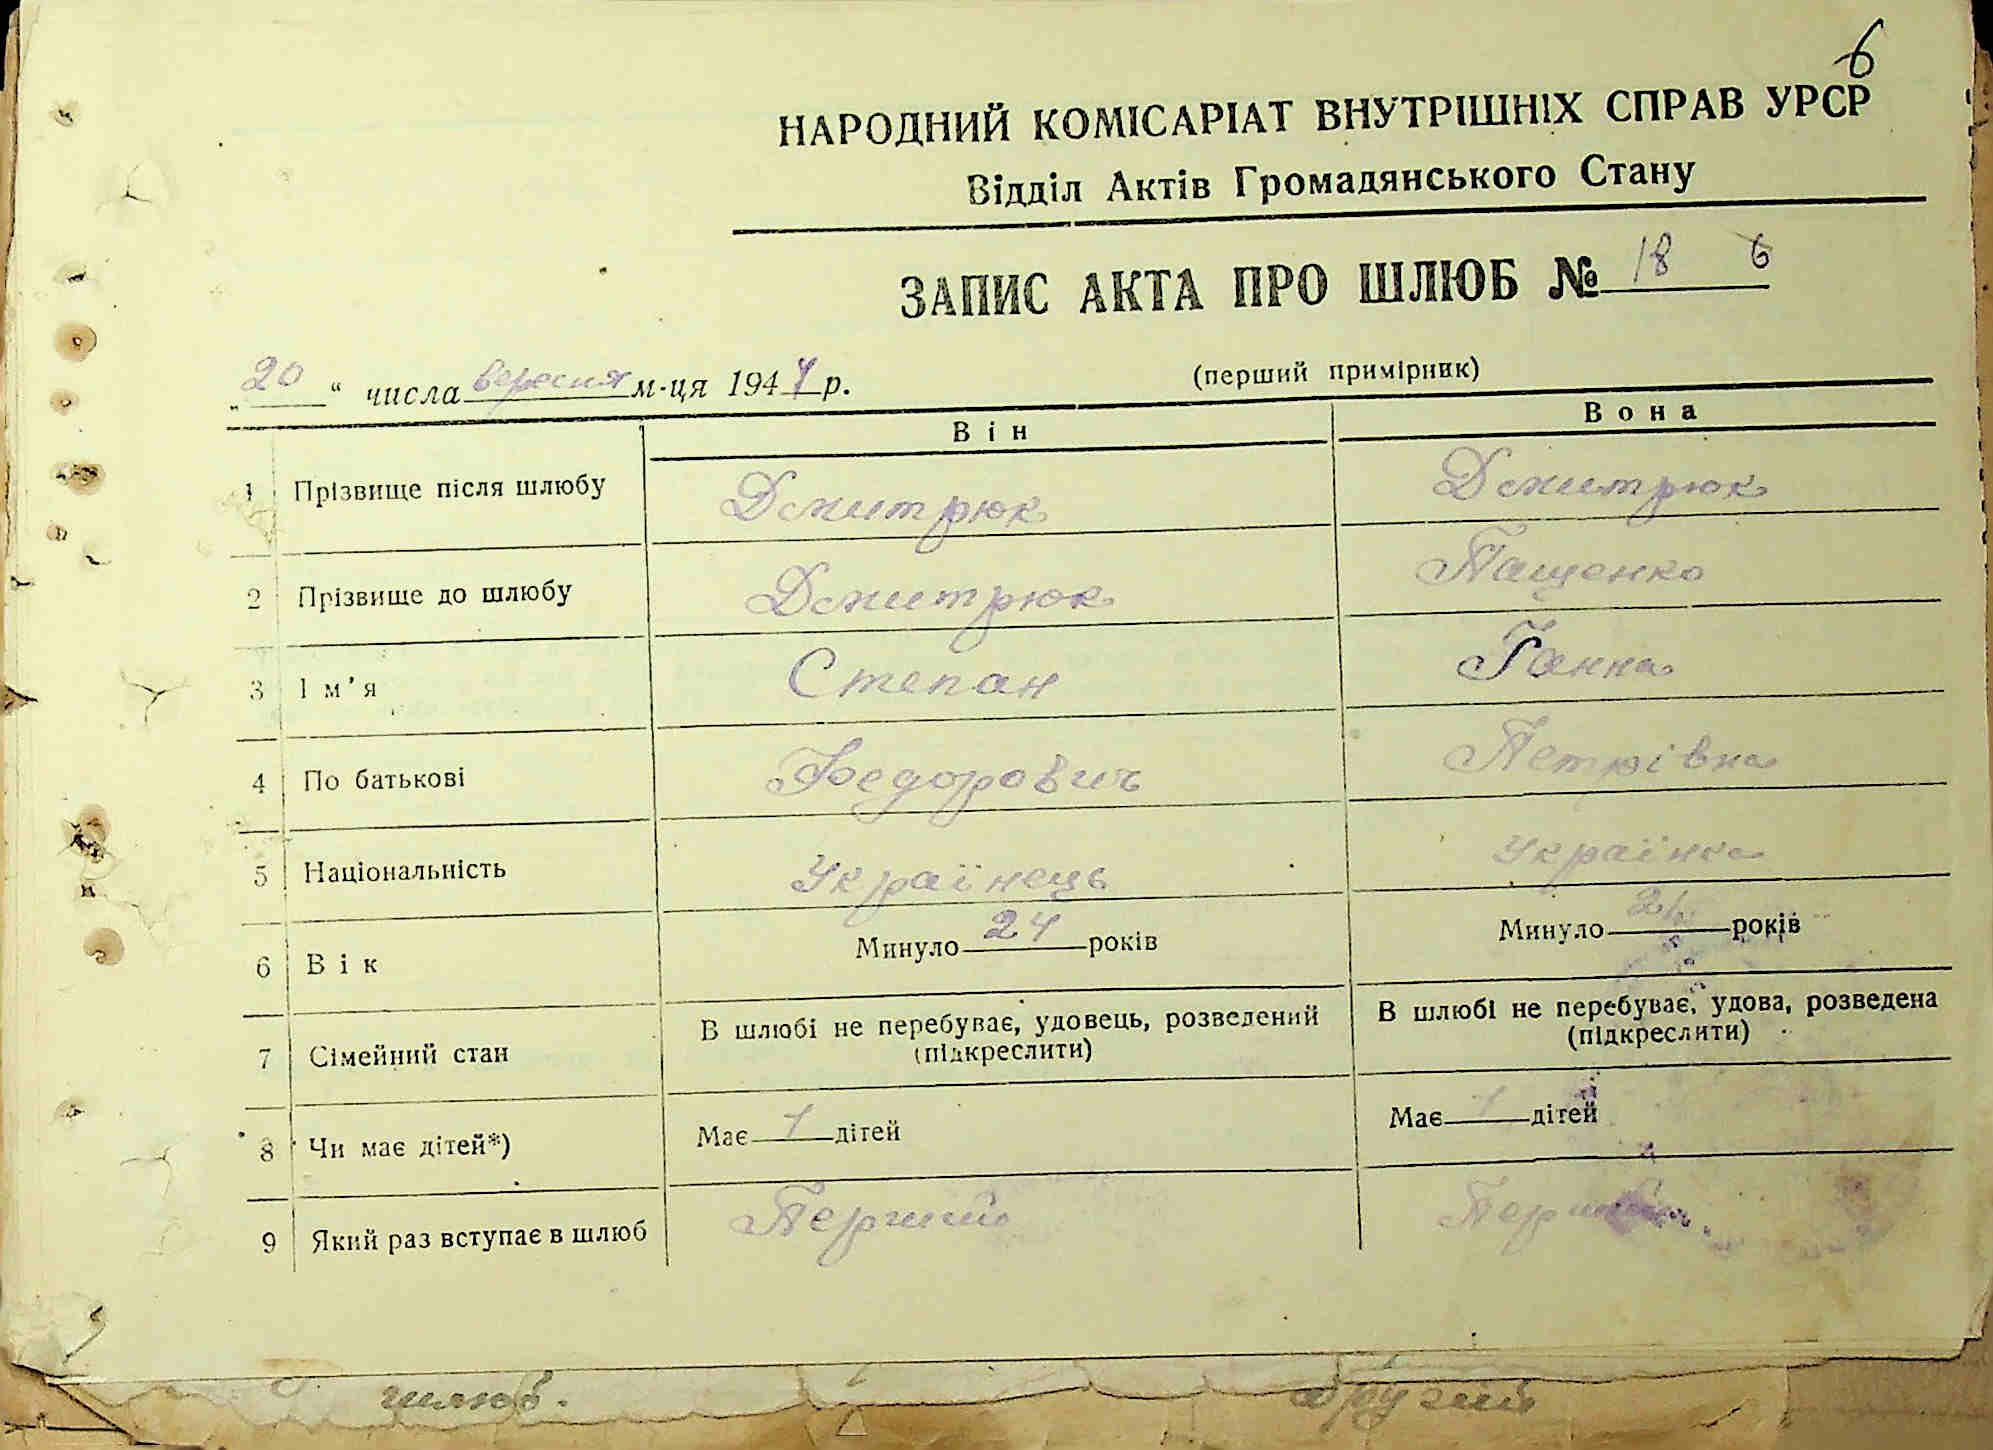 6
НАРОДНИЙ КОМІСАРІАТ ВНУТРІШНІХ СПРАВ УРСР
Відділ Актів Громадянського Стану
ЗАПИС АКТА ПРО ШЛЮБ № 18 6
„20“ числа вересня м-ця 1944 р. (перший примірник)
Він Вона
1 Прізвище після шлюбу Дмитрюк Дмитрюк
2 Прізвище до шлюбу Дмитрюк Пащенко
3 Ім’я Степан Ганна
4 По батькові Федорович Петрівна
5 Національність Українець Українка
6 Вік Минуло 24 років Минуло 21 років
7 Сімейний стан В шлюбі не перебуває, удовець, розведений (підкреслити) В шлюбі не перебуває, удова, розведена (підкреслити)
8 Чи має дітей*) Має 1 дітей Має 1 дітей
9 Який раз вступає в шлюб Перший Перший
шлюб. другий